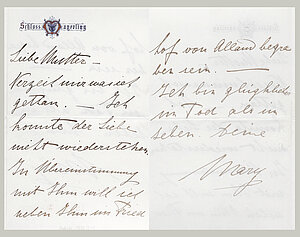 Schloss Mayerling
Liebe Mutter –
Verzeih mir was ich
gethan. — Ich
konnte der Liebe
nicht wiederstehen.
In Übereinstimmung
mit Ihm will ich
neben Ihm im Fried
hof von Alland begra
ben sein. —
Ich bin glücklicher
im Tod als im
Leben. Deine
Mary